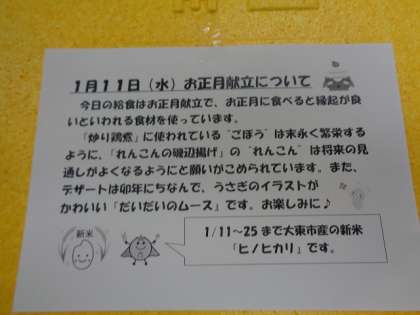 1月11日（水）お正月献立について
今日の給食はお正月献立で、お正月に食べると縁起が良
いといわれる食材を使っています。
「炒り鶏煮」に使われている“ごぼう”は末永く繁栄する
ように、「れんこんの磯辺揚げ」の“れんこん”は将来の見
通しがよくなるようにと願いがこめられています。また、
デザートは卯年にちなんで、うさぎのイラストが
かわいい「だいだいのムース」です。お楽しみに♪
新米
1/11～25まで大東市産の新米
「ヒノヒカリ」です。